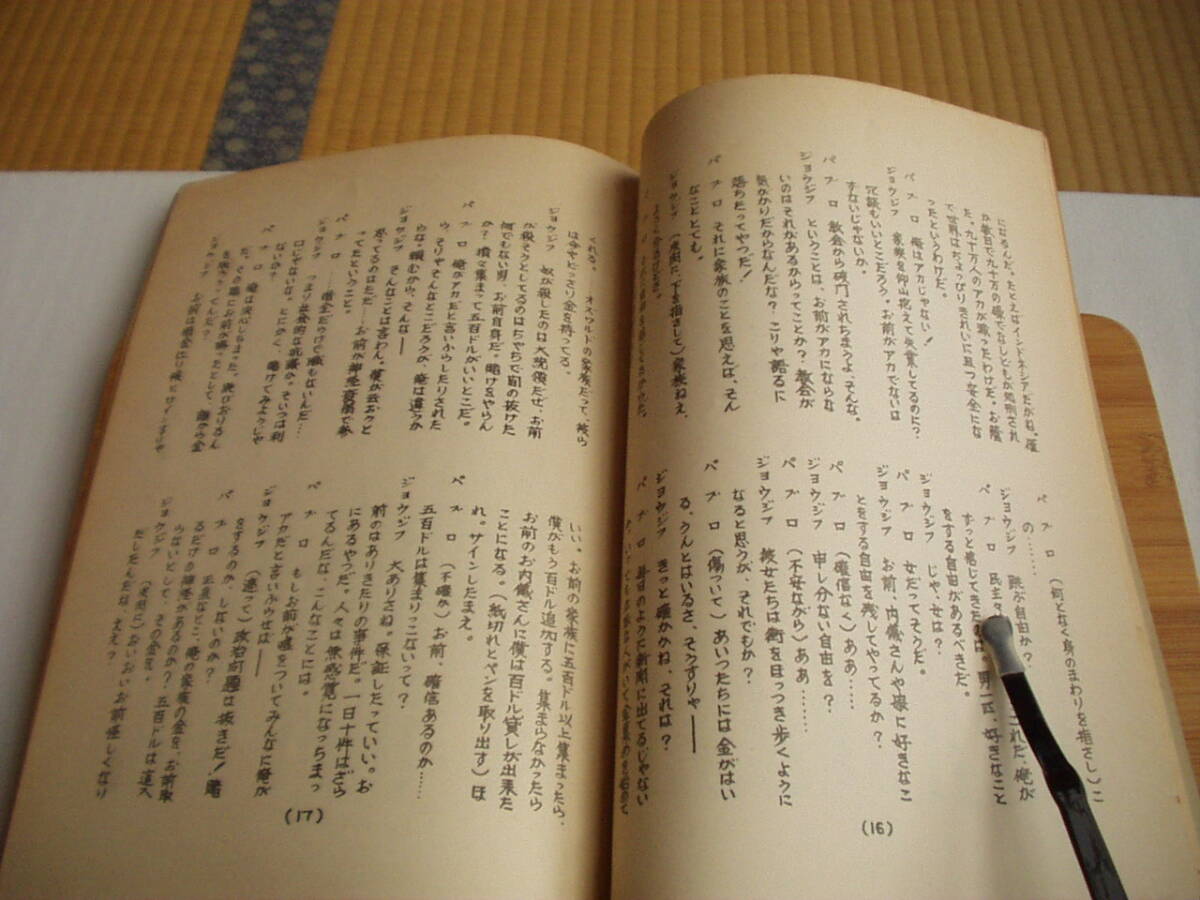 になるんだ。たとえばインドネシアだがね。僅
か数日で九十万の優でなしどもが処刑され
た。九十万人のアカが減ったわけだ。お蔭
で世界はちょっぴりきれいに且つ安全にな
ったというわけだ。
パブロ 俺はアカじゃない!
ジョウジフ 家族を仰山抱えて失業してるのに?
冗談もいいとこだろう。お前がアカでないは
ずないじゃないか。
パブロ 教会から破門されちまうよ、そんな。
ジョウジフ ということは、お前がアカにならな
いのはそれがあるからってことか? 教会が
気がかりだからなんだな? こりゃ語るに
落ちたってやつだ!
パブロ それに家族のことを思えば、そん
なこととても。
ジョウジフ (皮肉に、下を指さして)家族ねえ、
パブロ (何となく身のまわりを指さし)こ
の……
ジョウジフ 跳ぶ自由か?
パブロ 民主 これだ、俺が
ずっと感じてきた は。男一匹、好きなこと
をする自由があるべきだ。
ジョウジフ じゃ、女は?
パブロ 女だってそうだ。
ジョウジフ お前、内儀さんや娘に好きなこ
とをする自由を残してやってるか?
パブロ (確信なく)ああ……
ジョウジフ 申し分ない自由を?
パブロ (不安ながら)ああ……
ジョウジフ 彼女たちは街をほっつき歩くように
なると思うが、それでもか?
パブロ (傷ついて)あいつたちには金がはい
る、うんとはいるさ、そうすりゃ――
ジョウジフ きっと確かかね、それは?
パブロ 毎日のように新聞に出てるじゃない
(16)
くれる。――オスワルドの家族だって、彼ら
は今やどっさり金を持ってる。
ジョウジフ 奴が殺したのは大統領だぜ、お前
が殺そうとしてるのはたやすで間の抜けた
何でもない男、お前自身だ。賭けをやらん
か? 精々集まって五百ドルがいいとこだ。
パブロ 俺がアカだと言いふらしたりされた
ら、そりゃそんなとこだろうが、俺は違うか
らな。頼むから、そんな――
ジョウジフ そんなことは言わん。僕が云おうと
思ってるのはただ――お前が神経衰弱で参
ってたということ。
パブロ ――借金だらけで職もないんだ……
ジョウジフ つまり社会的な抗議か。そいつは利
口じゃないな。とにかく、賭けてみようじゃ
ないか?
パブロ 俺は決心しちまった。
いい。お前の家族に五百ドル以上集まったら、
僕がもう百ドル追加する。集まらなかったら
お前のお内儀さんに僕は百ドル貸しが出来た
ことになる。(紙切れとペンを取り出す)ほ
れ。サインしたまえ。
パブロ (不確か)お前、確信あるのか……
五百ドルは集まりっこないって?
ジョウジフ 大ありさね。保証したっていい。お
前のはありきたりの事件だ。一日十件はざら
にあるやつだ。人々は無感覚になっちまっ
てるんだな、こんなことには。
パブロ もしお前が嘘をついてみんなに俺が
アカだと言いふらせば――
ジョウジフ (遮って)政治問題は抜きだ! 賭
をするのか、しないのか?
パブロ 正直なとこ、俺の家族の金を、お前取
るだけの度胸があるのか? 五百ドルは這入
らないとして、その金を。
ジョウジフ (皮肉に)おいおいお前怪しくなり
だしたんだな、ええ?
(17)